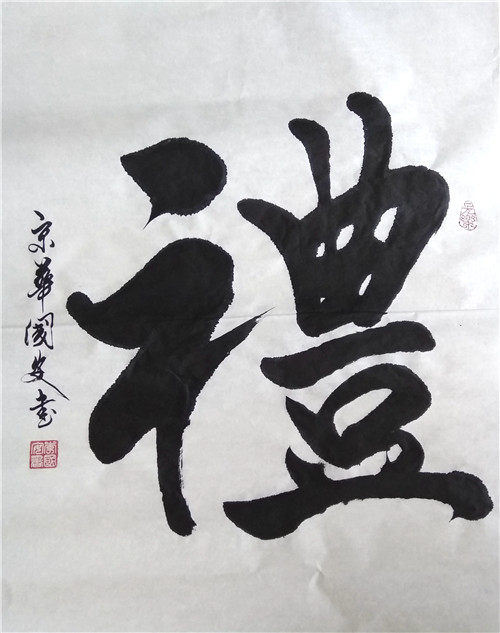 禮
京華國安書